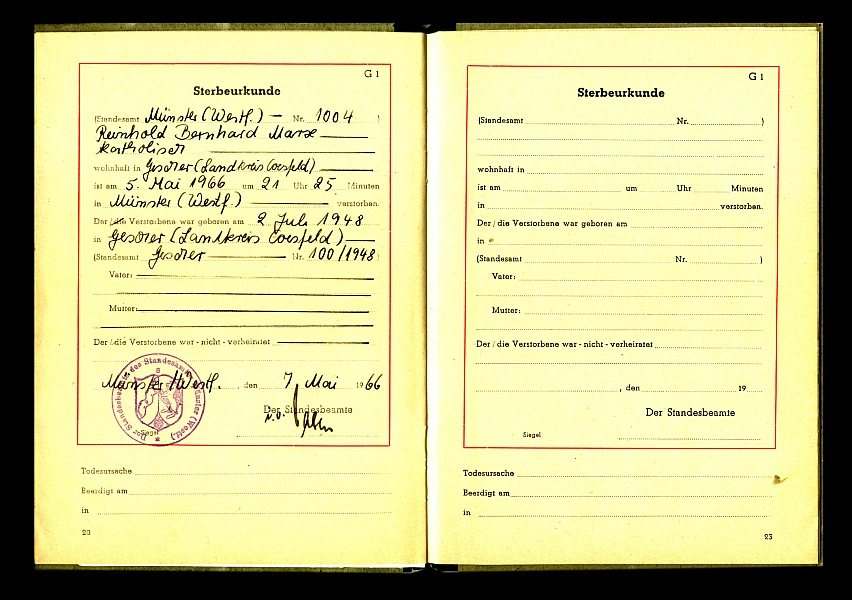 G 1
Sterbeurkunde
(Standesamt Münster (Westf.) — Nr. 1004 )
Reinhold Bernhard Marx
katholisch
wohnhaft in Gescher (Landkreis Coesfeld)
ist am 5. Mai 1966 um 21 Uhr 25 Minuten
in Münster (Westf.) verstorben.
Der / die Verstorbene war geboren am 2. Juli 1948
in Gescher (Landkreis Coesfeld)
(Standesamt Gescher Nr. 100/1948 )
Vater:
Mutter:
Der / die Verstorbene war - nicht - verheiratet
Münster Westf. , den 7. Mai 1966
Der Standesbeamte
Siegel
Todesursache
Beerdigt am
in
23
G 1
Sterbeurkunde
(Standesamt Nr. )
wohnhaft in
ist am um Uhr Minuten
in verstorben.
Der / die Verstorbene war geboren am
in
(Standesamt Nr. )
Vater:
Mutter:
Der / die Verstorbene war - nicht - verheiratet
, den 19
Der Standesbeamte
Siegel
Todesursache
Beerdigt am
in
23